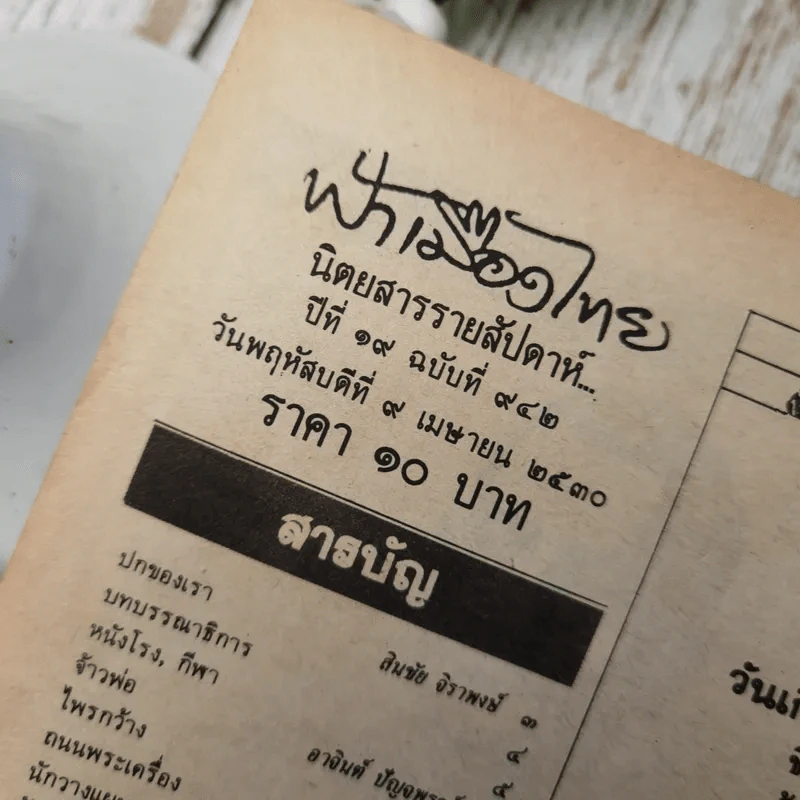 ฟ้าเมืองไทย
นิตยสารรายสัปดาห์...
ปีที่ ๑๙ ฉบับที่ ๙๔๒
วันพฤหัสบดีที่ ๙ เมษายน ๒๕๓๐
ราคา ๑๐ บาท
สารบัญ
ปกของเรา
บทบรรณาธิการ สิมชัย จิราพงษ์ ๓
หนังโรง, กีพา ๔
จ้าวพ่อ อาจินต์ ๕
ไพรกว้าง
ถนนพระเครื่อง